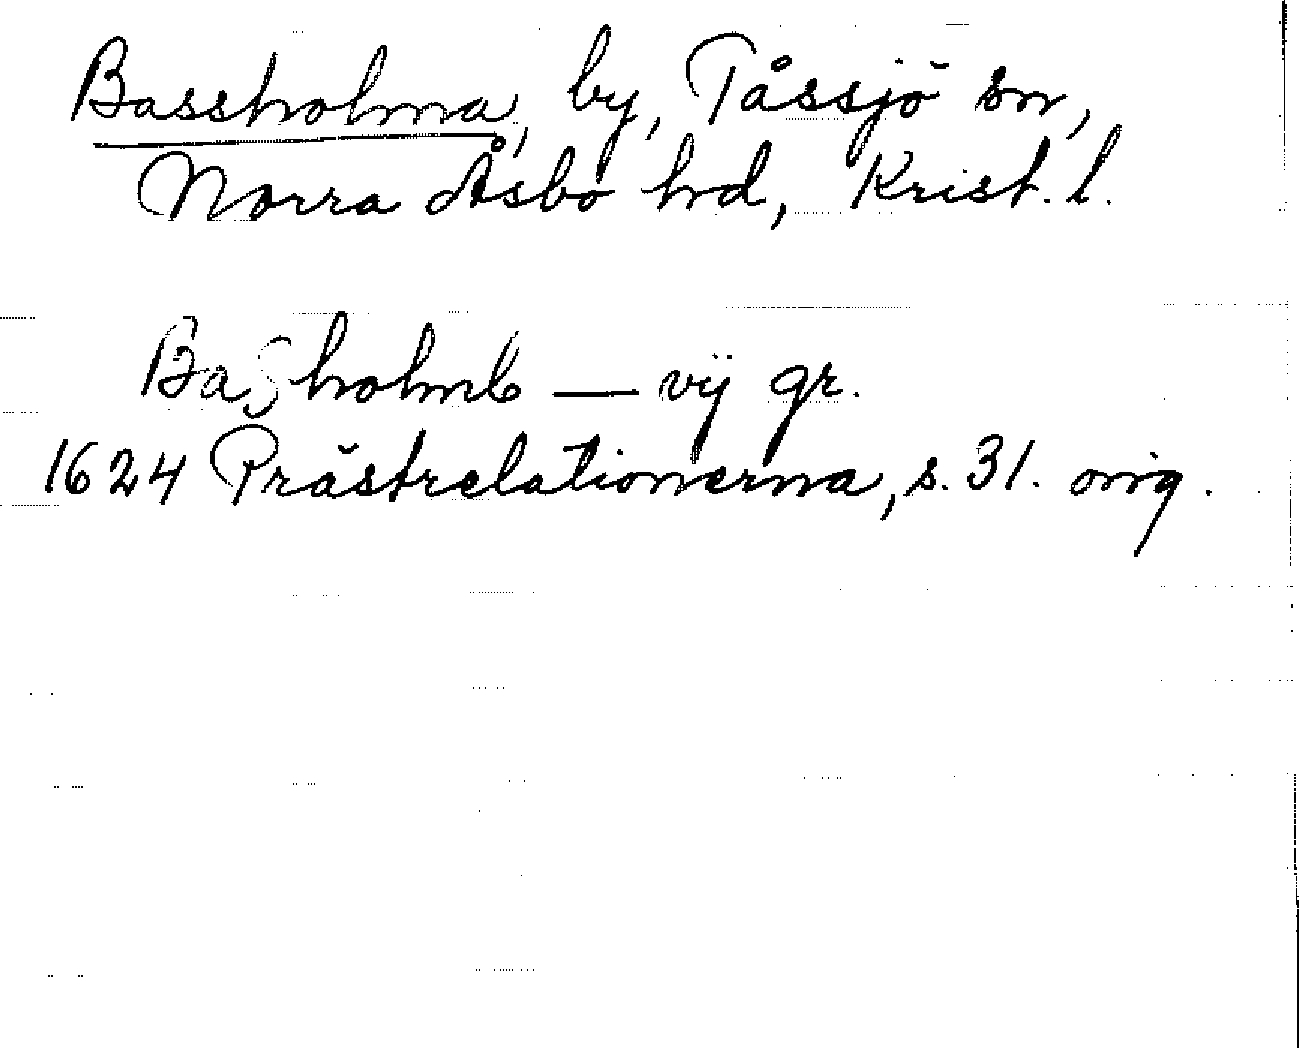 Bassholma, by, Tåssjö sn,
Norra Åsbo hrd, Krist. l.
Basholmb — vij gr.
1624 Prästrelationerna, s. 31. orig.